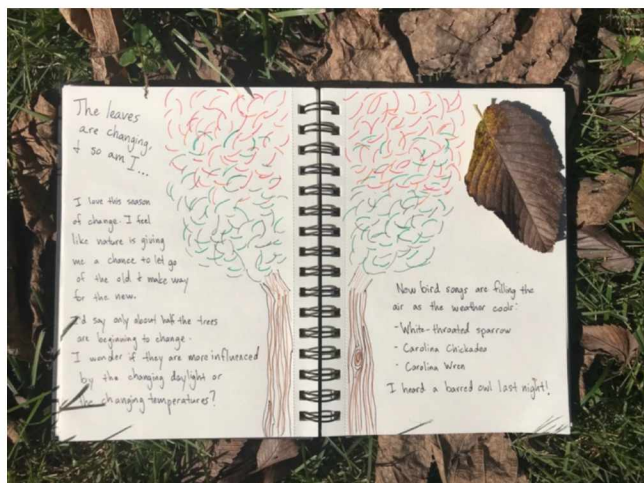 The leaves
are changing,
& so am I...
I love this season
of change. I feel
like nature is giving
me a chance to let go
of the old & make way
for the new.
I'd say only about half the trees
are beginning to change.
I wonder if they are more influenced
by the changing daylight or
the changing temperatures?
Now bird songs are filling the
air as the weather cools:
- White-throated sparrow
- Carolina Chickadee
- Carolina Wren
I heard a barred owl last night!